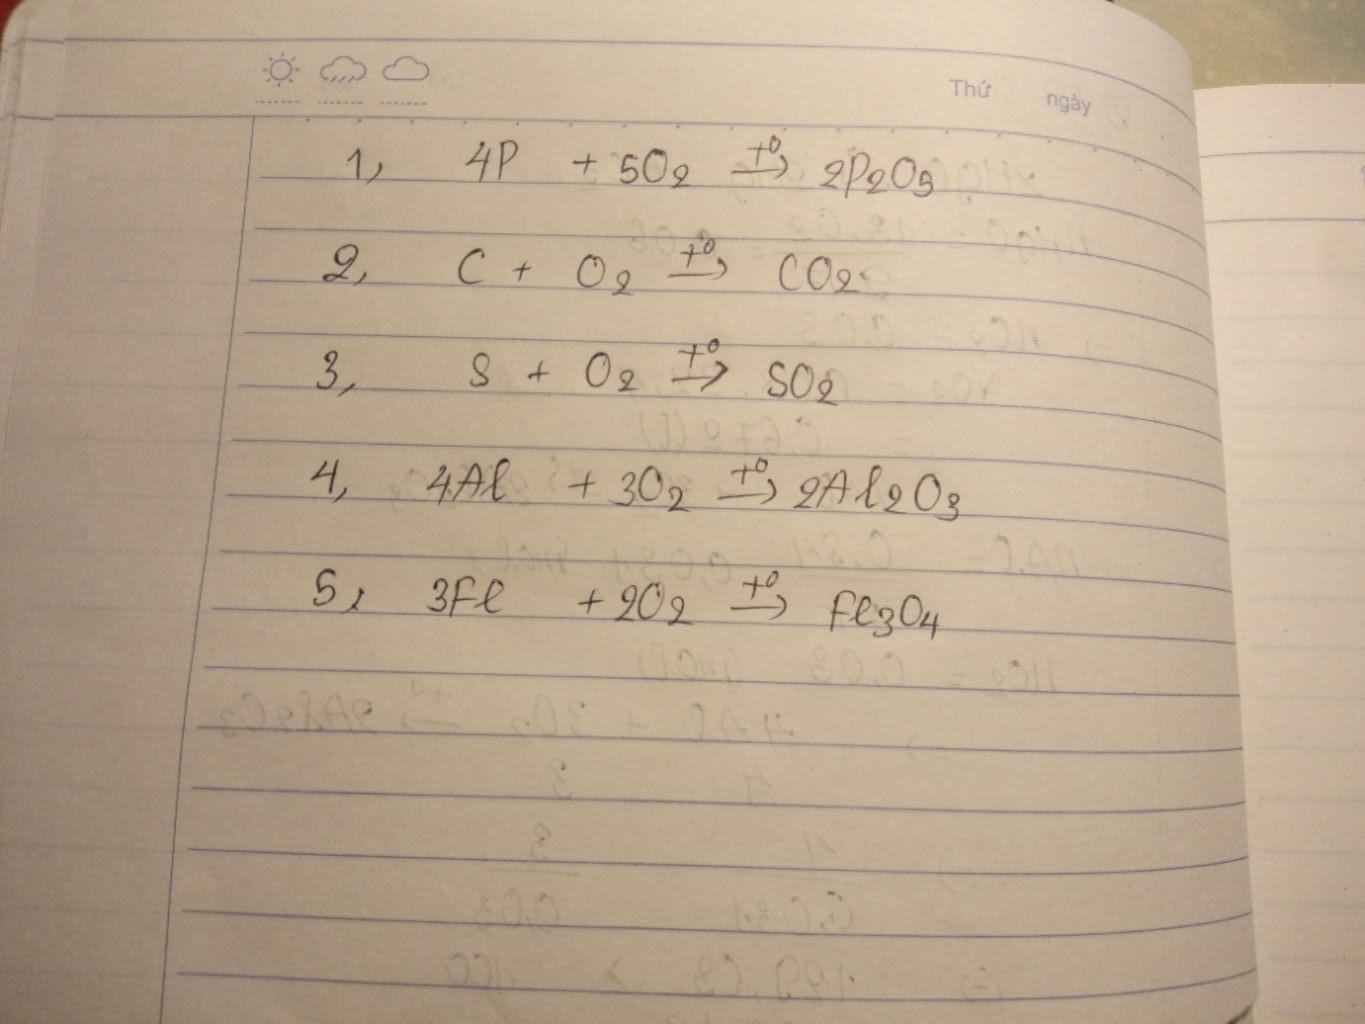 Thứ ngày
1, 4P + 5O₂ →(t⁰) 2P₂O₅
2, C + O₂ →(t⁰) CO₂
3, S + O₂ →(t⁰) SO₂
4, 4Al + 3O₂ →(t⁰) 2Al₂O₃
5, 3Fe + 2O₂ →(t⁰) Fe₃O₄